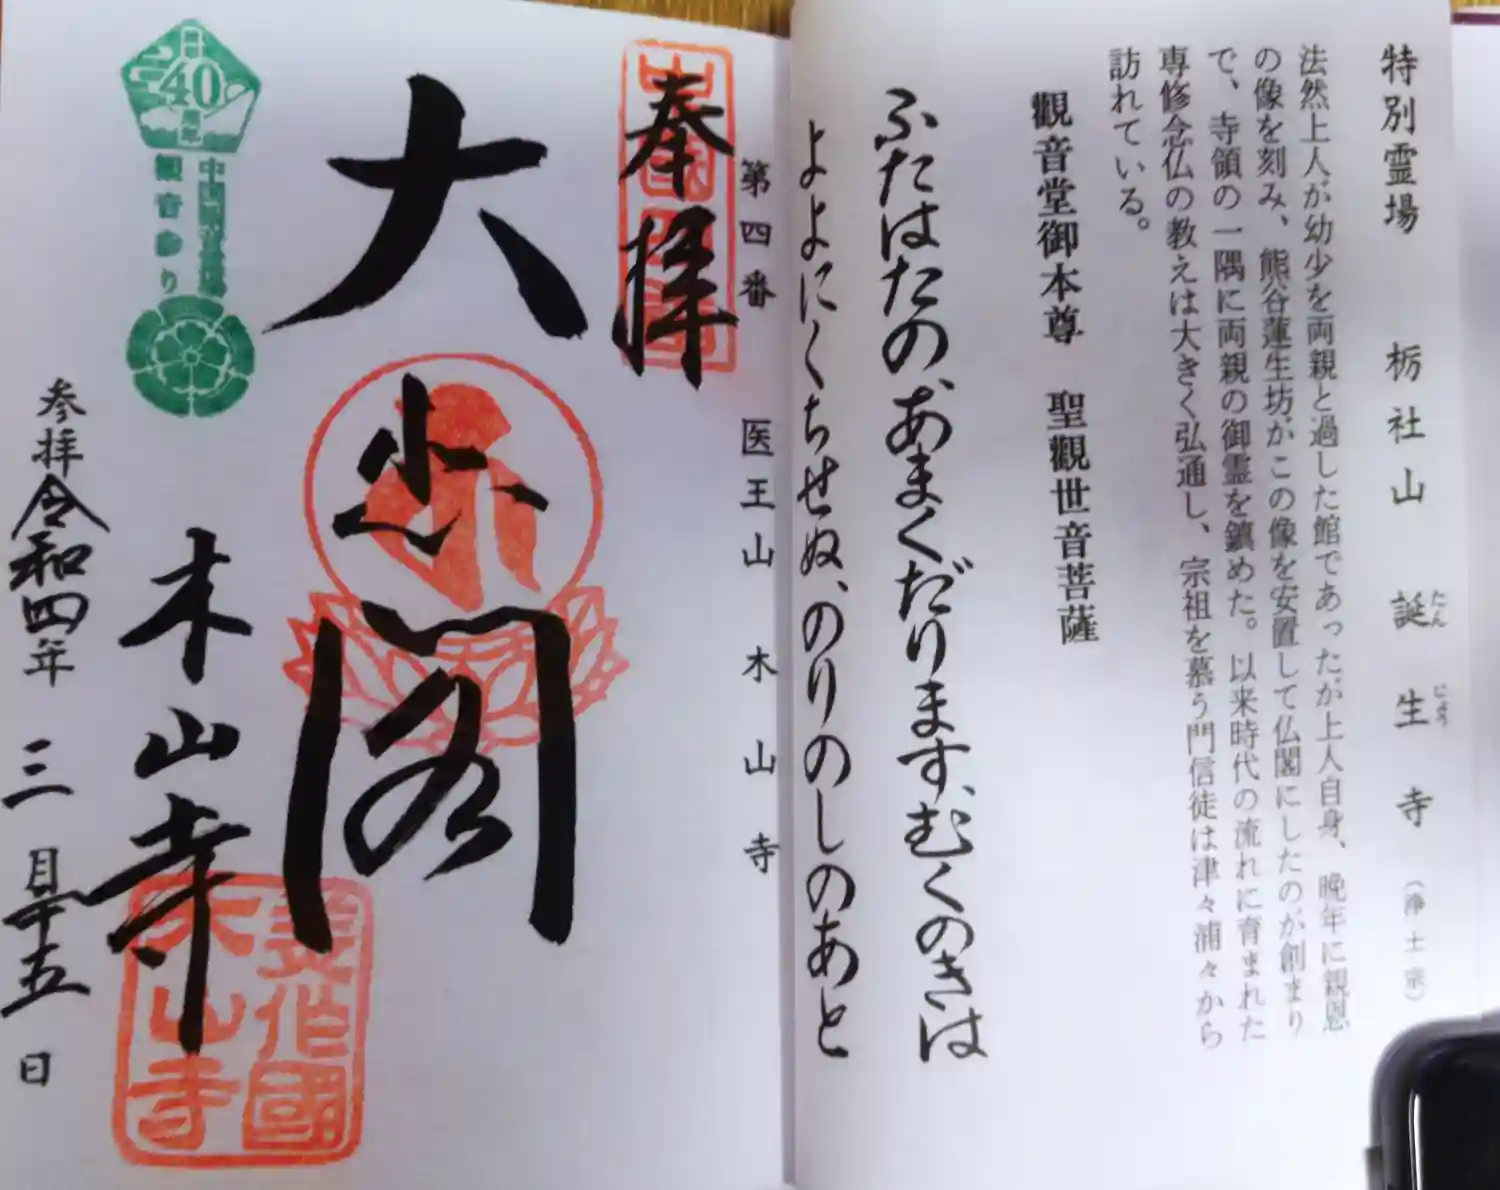 特別霊場　栃社山　誕生寺（浄土宗）
たんじょう
法然上人が幼少を両親と過した館であったが上人自身、晩年に親恩
の像を刻み、熊谷蓮生坊がこの像を安置して仏閣にしたのが創まり
で、寺領の一隅に両親の御霊を鎮めた。以来時代の流れに育まれた
専修念仏の教えは大きく弘通し、宗祖を慕う門信徒は津々浦々から
訪れている。
觀音堂御本尊　聖觀世音菩薩
ふたはたの、あまくだります、むくのきは
よよにくちせぬ、のりのしのあと
第四番　医王山　木山寺
奉拝
大悲閣
木山寺
美作國
木山寺
40
周年
中国観音霊場
観音参り
参拝令和四年三月十五日